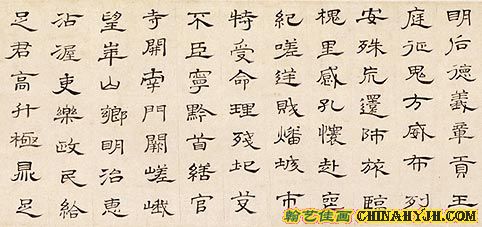 明后德義章貢王
庭征鬼方威布列
安殊荒還師旅臨
槐里感孔懷赴喪
紀嗟逆賊燔城市
特受命理殘圮芟
不臣寧黔首繕官
寺開南門闕嵯峨
望華山鄉明治惠
沾渥吏樂政民給
足君高升極鼎足
翰艺佳画 CHINAHYJH.COM